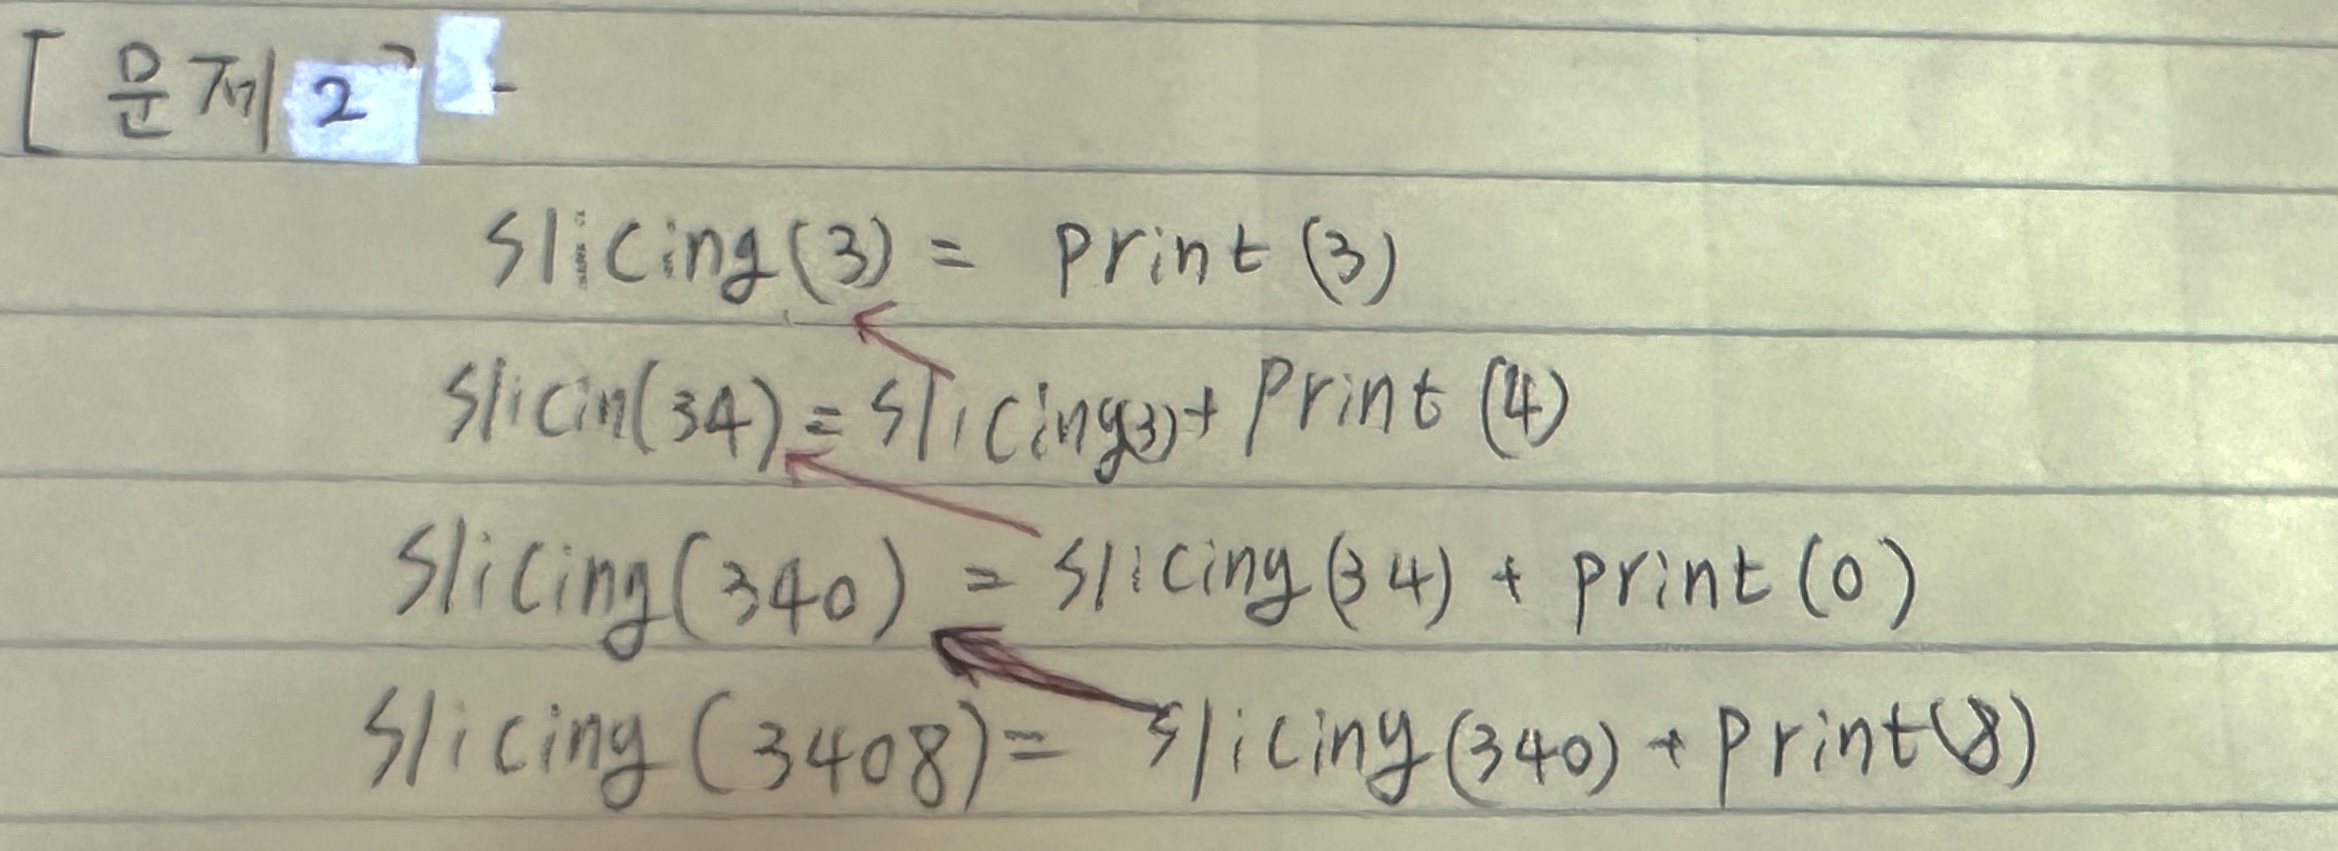 [문제 2]
slicing(3) = print(3)
slicin(34) = slicing(3) + print(4)
slicing(340) = slicing(34) + print(0)
slicing(3408) = slicing(340) + print(8)